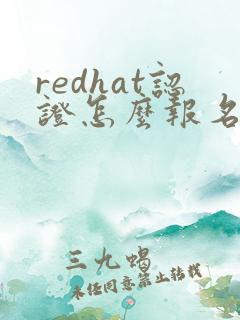 redhat認
證怎麼報名
三九蝎
未經同意禁止轉載